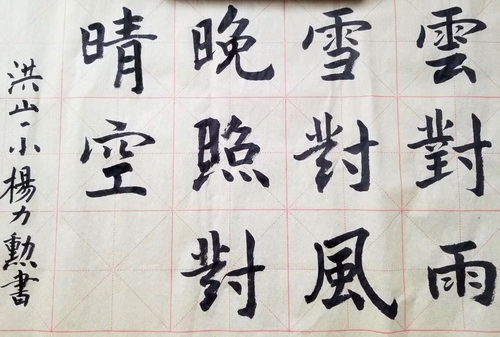 雲對雨
雪對風
晚照對
晴空
洪山一小楊力勲書